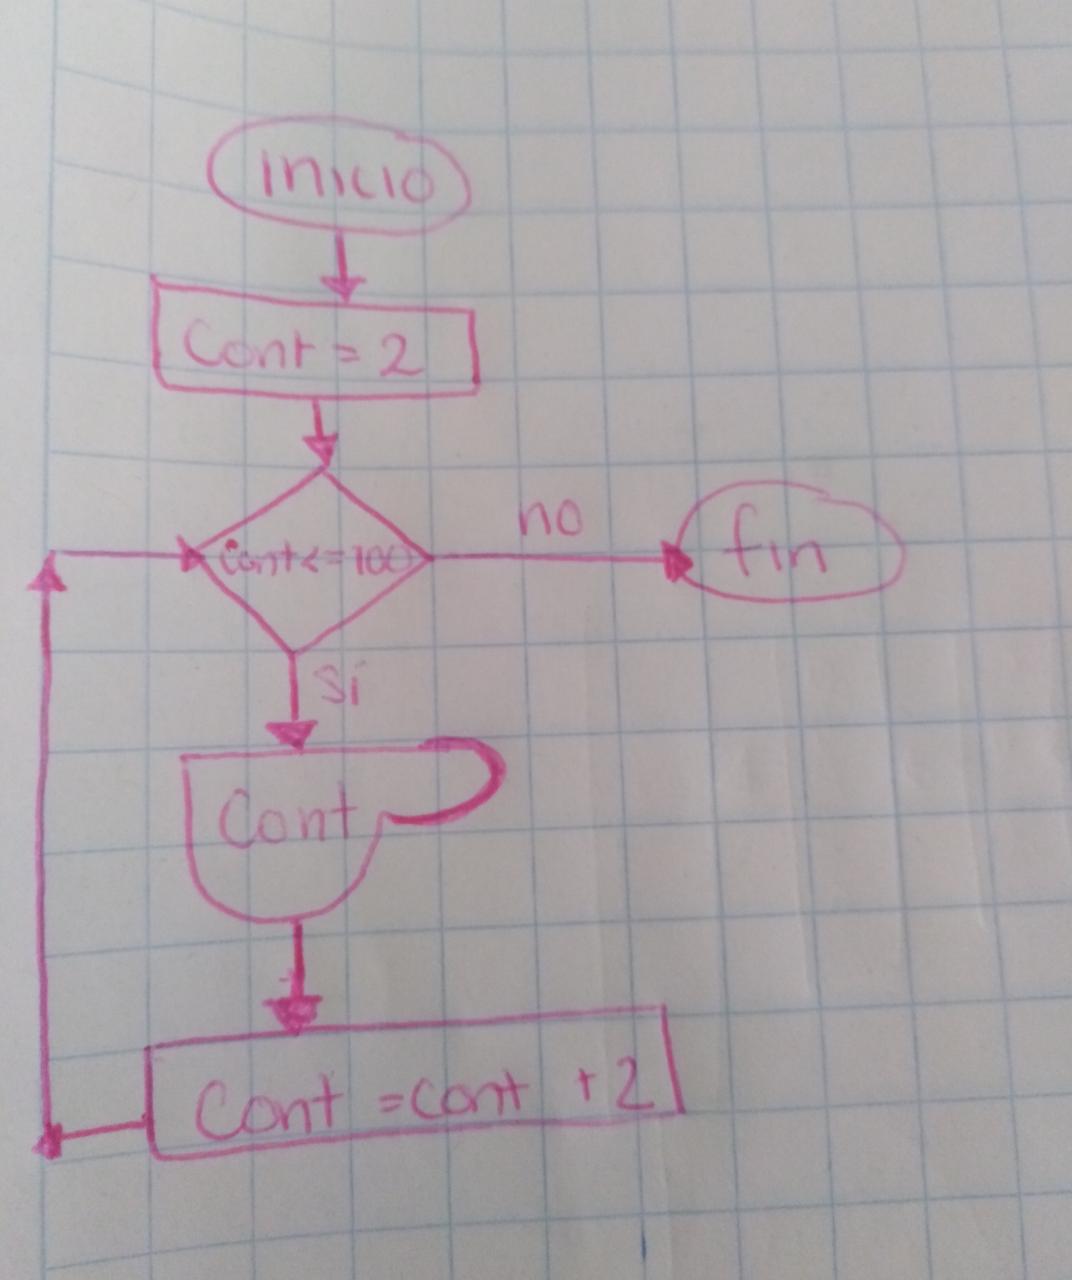 inicio
Cont = 2
Cont<=100
no
fin
si
Cont
Cont =cont +2